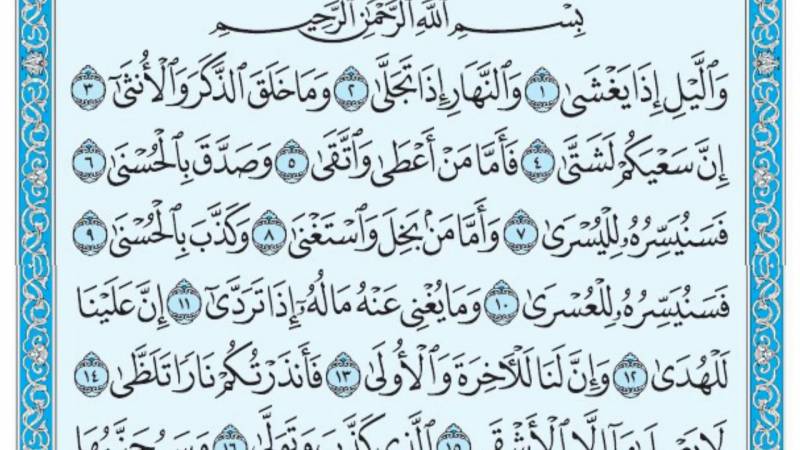 بِسْمِ ٱللَّهِ ٱلرَّحْمَٰنِ ٱلرَّحِيمِ
وَٱلَّيْلِ إِذَا يَغْشَىٰ ١ وَٱلنَّهَارِ إِذَا تَجَلَّىٰ ٢ وَمَا خَلَقَ ٱلذَّكَرَ وَٱلْأُنثَىٰٓ ٣
إِنَّ سَعْيَكُمْ لَشَتَّىٰ ٤ فَأَمَّا مَنْ أَعْطَىٰ وَٱتَّقَىٰ ٥ وَصَدَّقَ بِٱلْحُسْنَىٰ ٦
فَسَنُيَسِّرُهُۥ لِلْيُسْرَىٰ ٧ وَأَمَّا مَنۢ بَخِلَ وَٱسْتَغْنَىٰ ٨ وَكَذَّبَ بِٱلْحُسْنَىٰ ٩
فَسَنُيَسِّرُهُۥ لِلْعُسْرَىٰ ١٠ وَمَا يُغْنِى عَنْهُ مَالُهُۥٓ إِذَا تَرَدَّىٰٓ ١١ إِنَّ عَلَيْنَا
لَلْهُدَىٰ ١٢ وَإِنَّ لَنَا لَلْأَخِرَةَ وَٱلْأُولَىٰ ١٣ فَأَنذَرْتُكُمْ نَارًا تَلَظَّىٰ ١٤
ٱلَّذِى كَذَّبَ وَتَوَلَّىٰ ١٦